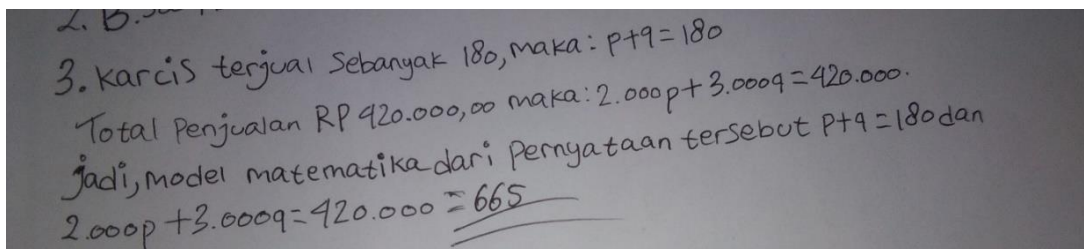 2. B.
3. Karcis terjual Sebanyak 180, maka: p+q=180
Total Penjualan RP 420.000,00 maka: 2.000p+3.000q=420.000.
jadi, model matematika dari Pernyataan tersebut P+q=180 dan
2.000p+3.000q=420.000 = 665